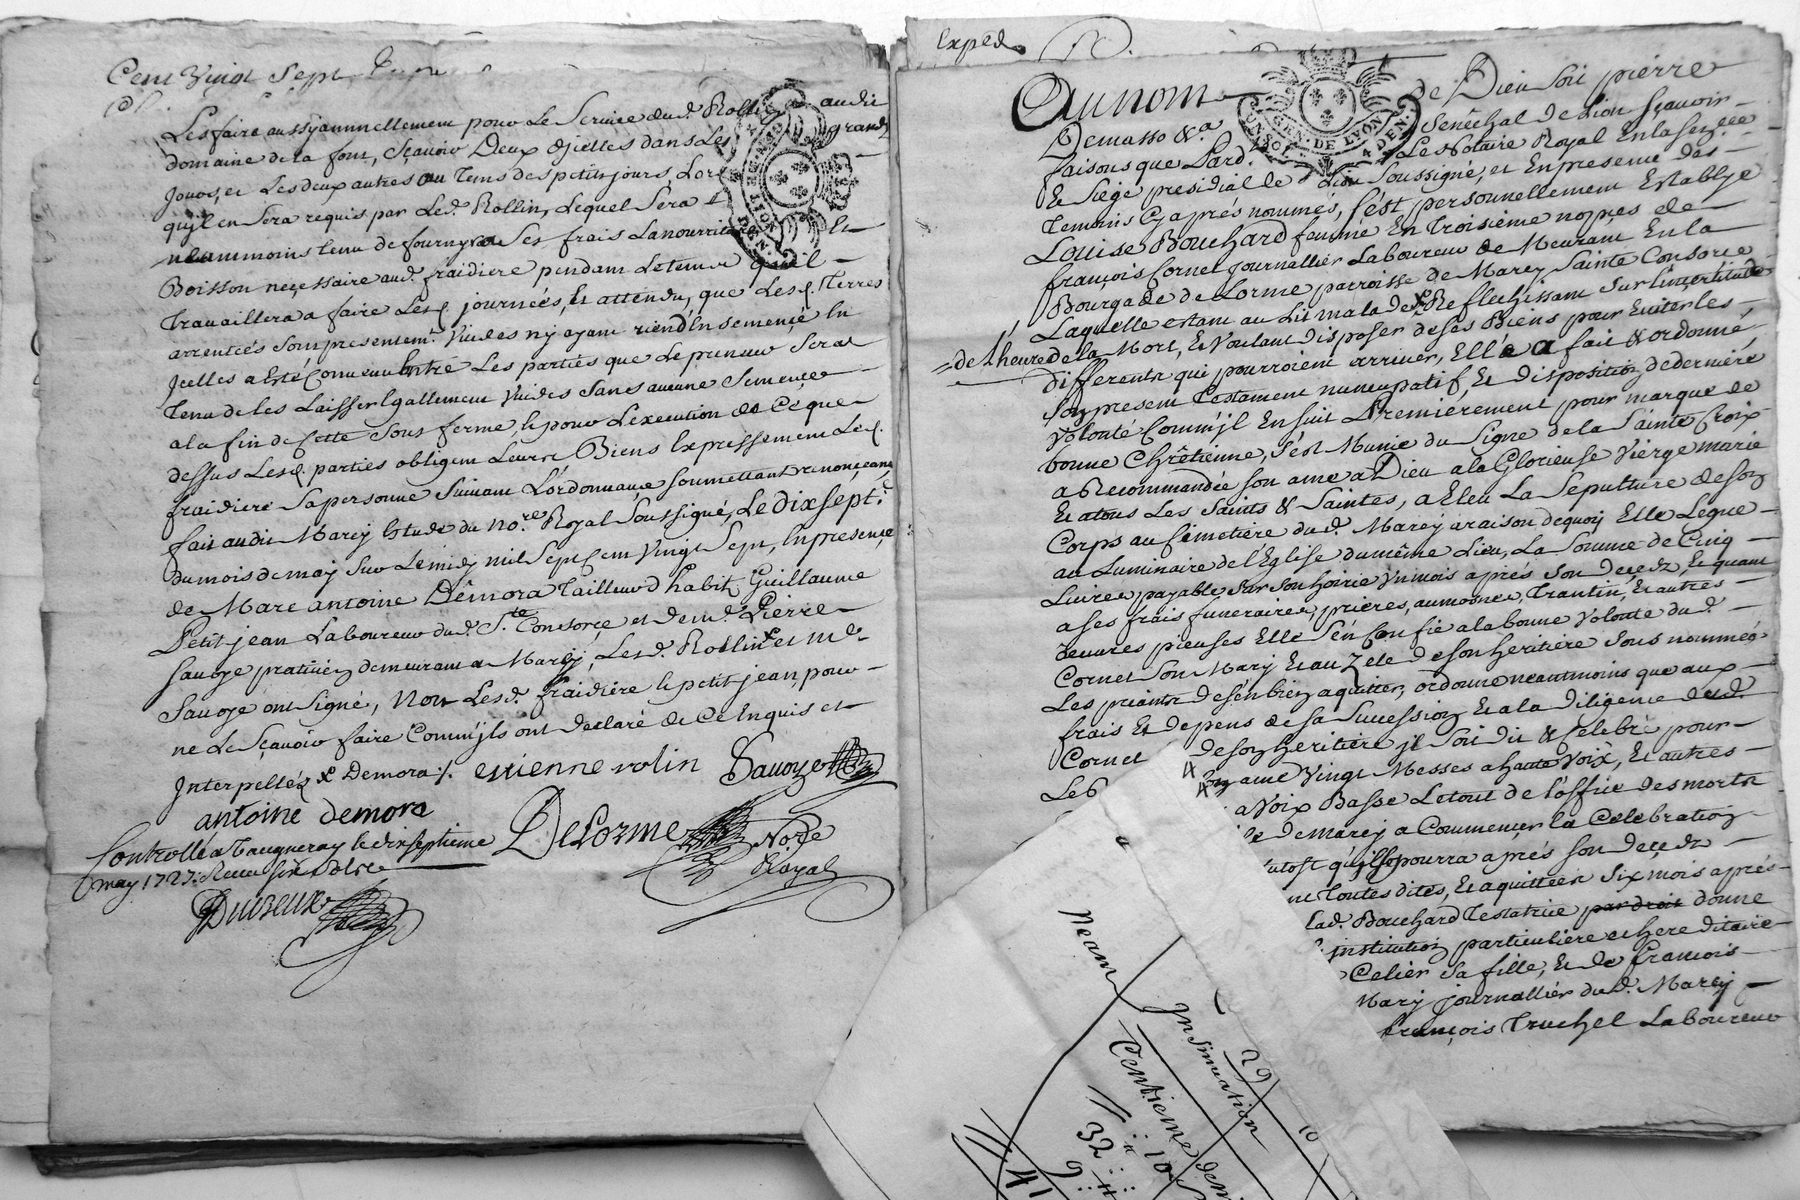 Cent Vingt Sept
Les faire aussy annuellement pour Le Service dud. Rollin audit
domaine de la font, Sçavoir Deux d'jcelles dans Les grands
Jours, et Les deux autres au Tems des petits jours, Lors
qu'il en Sera requis par Led. Rollin, Lequel Sera
neammoins tenu de fournir a Ses frais La nourriture Et
Boisson necessaire aud. fraidiere pendant Le tems qu'il
travaillera a faire Lesd. journeés, Et attendu, que Lesd. Terres
arrenteés Sont presentemt. Vuides n'y ayant rien d'Ensemencé En
Jcelles a Esté Convenu Entre Les parties que Le preneur Sera
Tenu de les Laisser Egallement Vuides Sans aucune Semence
a la fin de Cette Sous ferme, Et pour L'execution de Ce que
dessus Lesd. parties obligent Leurs Biens Expressement Led.
fraidiere Sa personne Suivant L'ordonnance Soumettant renonçeant
fait audit Marcy Estude du Nore. Royal Soussigné, Le Dixsept.e
du mois de may Sur Le midy mil Sept Cent Vingt Sept, En presence
de Marc antoine Démora Tailleur d'habit, Guillaume
Petitjean Laboureur dud. Ste. Consorce et de md. Pierre
Savoye praticien demeurant a Marcy, Lesd. Rollin x et me.
Savoye ont Signé, Non Lesd. fraidiére et petit jean, pour
ne Le Sçavoir faire Comm'jls ont declaré de Ce Enquis et
Interpellés x Demora /.
etienne rolin
Savoye
antoine demora
Delorme
Nore
Royal
Controllé a Vaugneray le dixseptieme
may 1727. Receu Six Sols
Expede.
Au nom de Dieu Soit pierre
Demasso &a. Senêchal de Lion Sçavoir
faisons que Pard. Le Notaire Royal En la Senlle.
Et Siége presidial de Lion Soussigné, et En presence des
Temoins Cy aprés nommes, S'est personnellement Establye
Louise Bouchard femme En Troisiême nopçes de
françois Cornet journallier Laboureur de Meurant En la
Bourgade de Lorme parroisse de Marcy Sainte Consorce
Laquelle estant au Lit malade x Reflechissant Sur l'incertitude
= de l'heure de la Mort, Et Voulant disposer de ses Biens pour Eviter les
differents qui pourroient arriver, Elle a fait & ordonné
Son present Testament nuncupatif, Et disposition de derniére
Volonté Comm'jl En suit Premiérement pour marque de
bonne Chrêtienne, s'est Munie du Signe de la Sainte Croix
a Recommandée son ame a Dieu a la Glorieuse Vierge marie
Et a tous Les Saints & Saintes, a Eleu La Sepulture de son
Corps au Cimetiére dud. Marcy a raison de quoy Elle Legue
au Luminaire de l'Eglise du même Lieu, La Somme de Cinq
Livres payable Sur Son hoirie Un mois aprés Son Decedz Et quant
a ses frais funeraires, prieres, aumosnes, Trantin, Et autres
oeuvres pieuses Elle S'en Confie a la bonne Volonté dud.
Cornet Son Mary Et au Zele de son heritiére Sous nommeé
Les priants de S'en bien aquitter, ordonne neantmoins que aux
frais Et depens de sa Succession Et a la diligence dud.
Cornet de son heritiére jl Soit dit & Celebré pour
ame Vingt Messes a haute Voix, Et autres
a Voix Basse Le tout de l'office des morts
de marcy a Commencer la Celebration
tost qu'jl Se pourra aprés Son Decedz
Toutes dites, Et aquitteés Six mois aprés
Lad. Bouchard Testatrice par droit donne
institution particuliére et hereditaire
Celier Sa fille, Et de françois
Mary journallier dud. Marcy
françois Truchel Laboureur
GEN. DE LYON
4 DEN.
Neant
29
Insinuation
10
Centieme denier